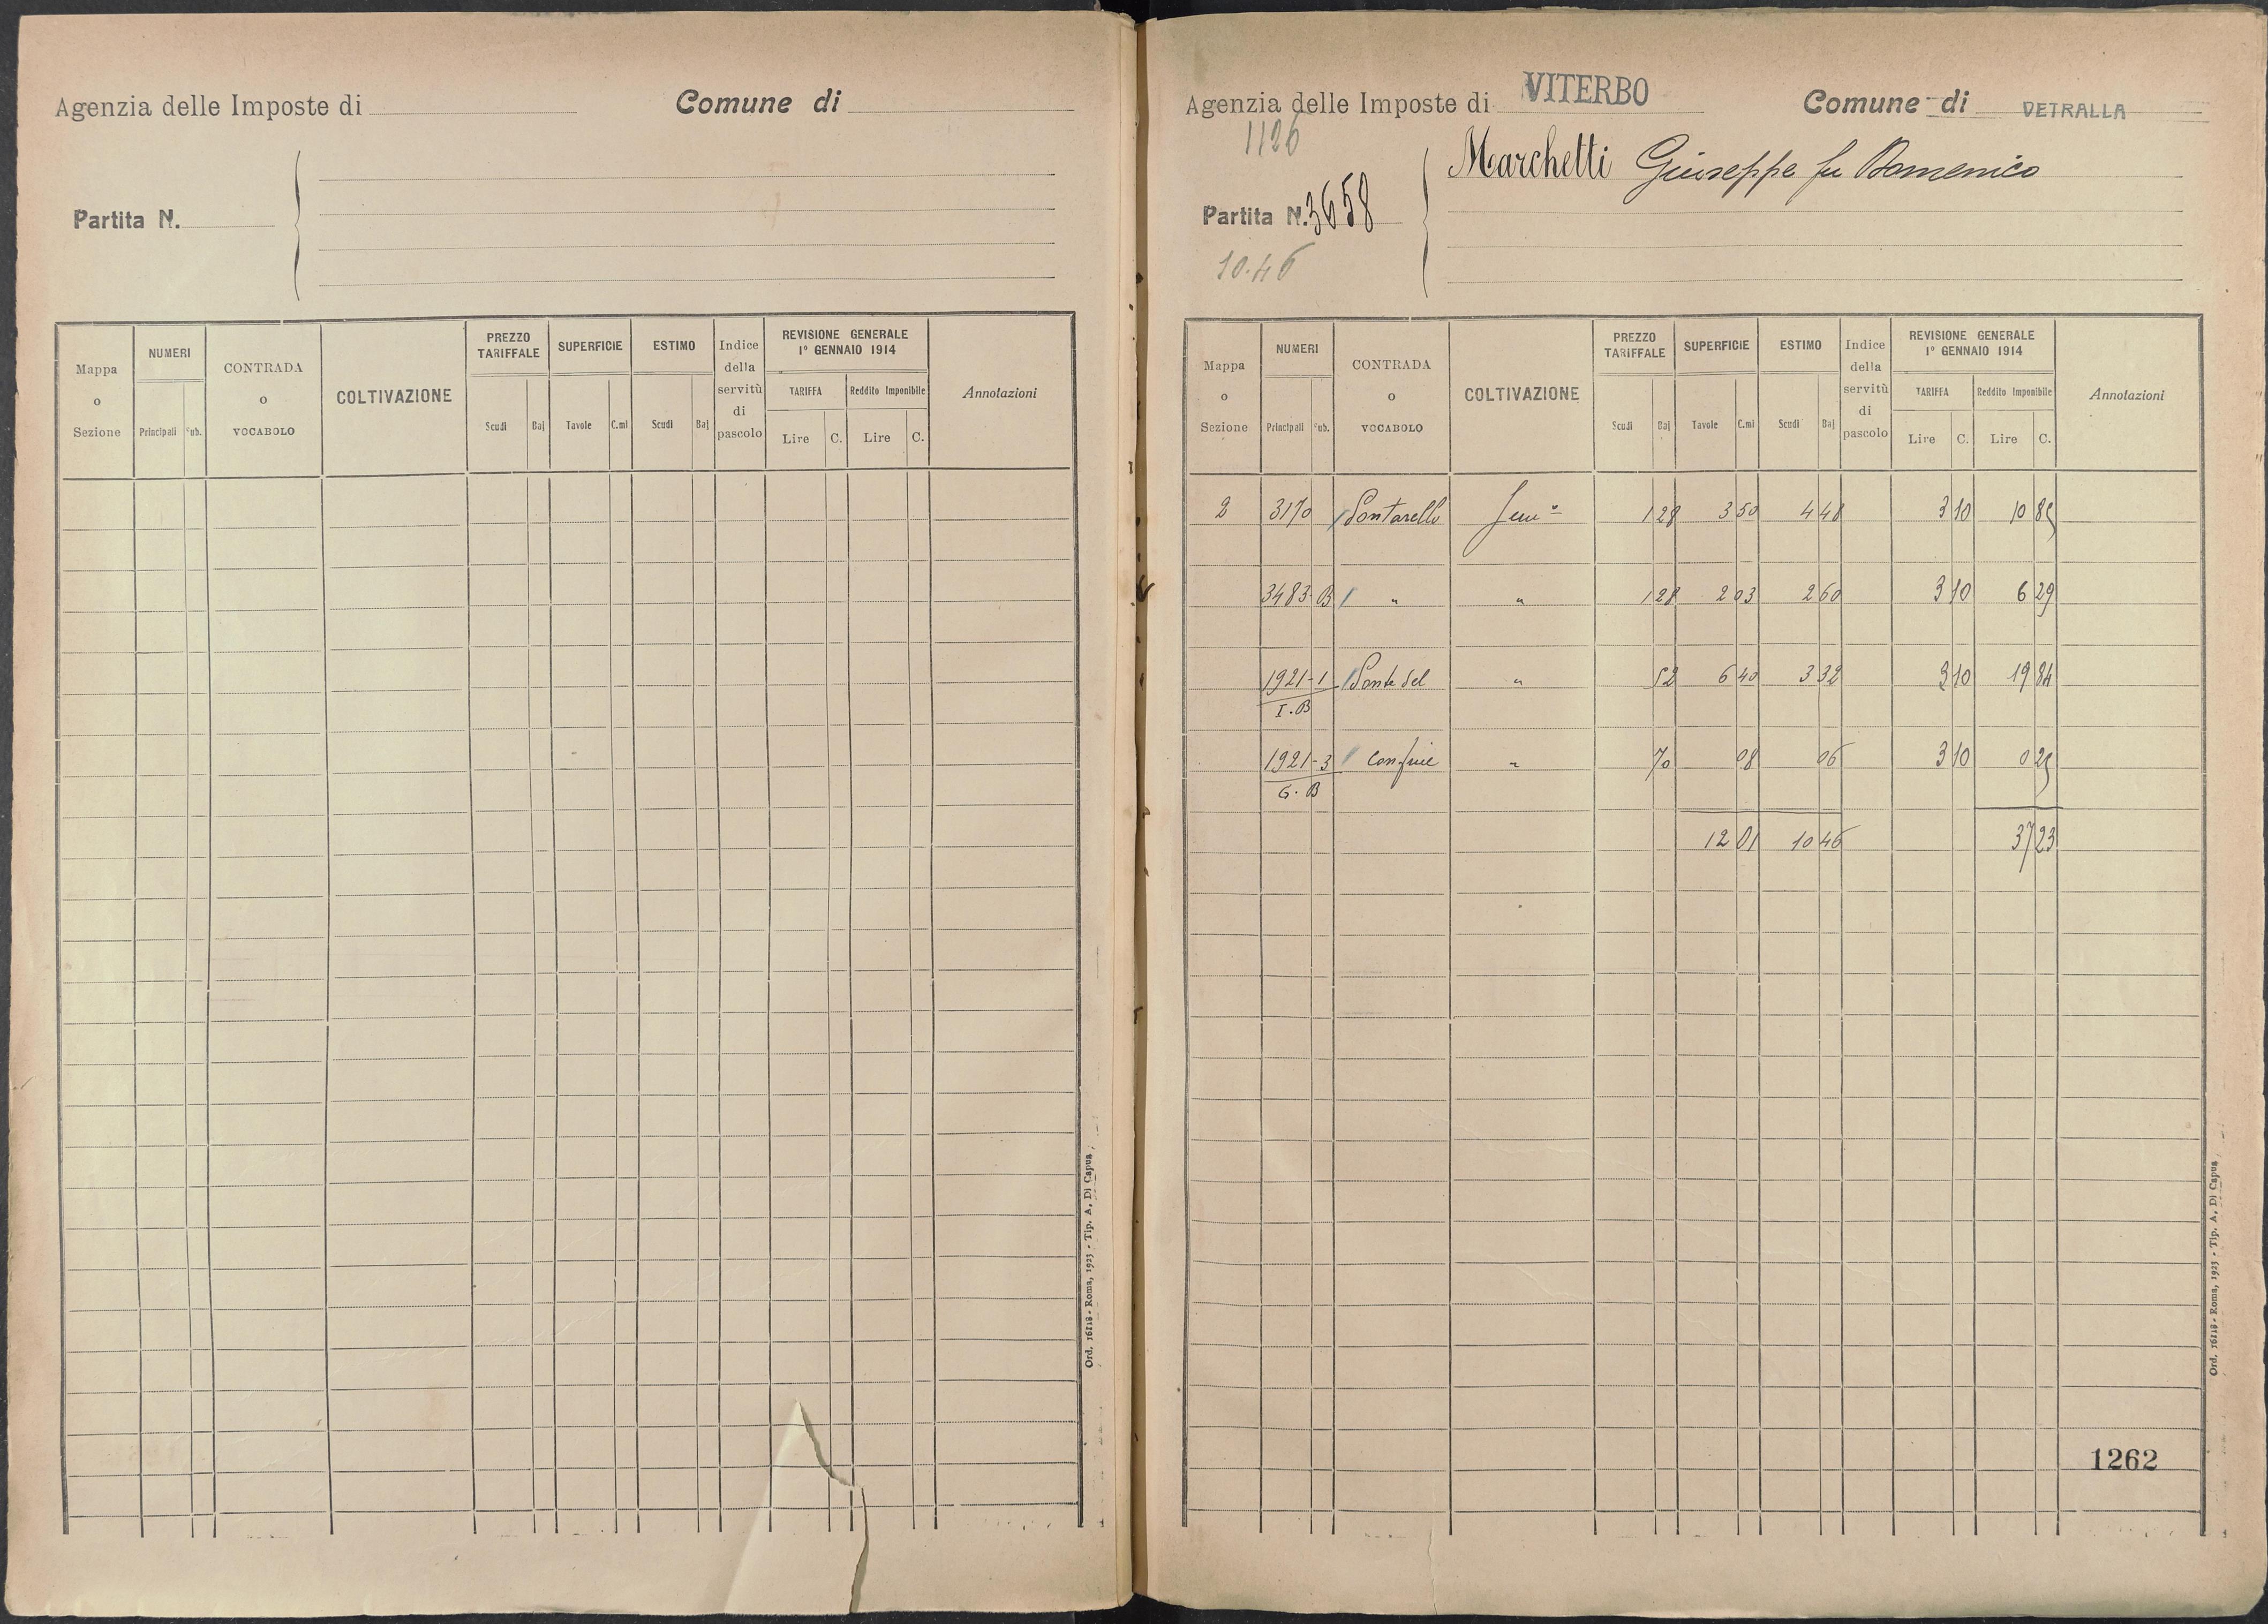 Agenzia delle Imposte di
Comune di
Partita N.
Mappa o Sezione
NUMERI
Principali
Sub.
CONTRADA o VOCABOLO
COLTIVAZIONE
PREZZO TARIFFALE
Scudi
Baj
SUPERFICIE
Tavole
C.mi
ESTIMO
Scudi
Baj
Indice della servitù di pascolo
REVISIONE GENERALE
1° GENNAIO 1914
TARIFFA
Lire C.
Reddito Imponibile
Lire C.
Annotazioni
Ord. 16118 - Roma, 1923 - Tip. A. Di Capua
Agenzia delle Imposte di VITERBO
Comune di VETRALLA
1126
Marchetti Giuseppe fu Domenico
Partita N. 3658
10.46
Mappa o Sezione
NUMERI
Principali
Sub.
CONTRADA o VOCABOLO
COLTIVAZIONE
PREZZO TARIFFALE
Scudi
Baj
SUPERFICIE
Tavole
C.mi
ESTIMO
Scudi
Baj
Indice della servitù di pascolo
REVISIONE GENERALE
1° GENNAIO 1914
TARIFFA
Lire C.
Reddito Imponibile
Lire C.
Annotazioni
2 3170 Pontarello Sem° 1 28 3 50 4 48 3 10 10 85
3483 B " " 1 28 2 03 2 60 3 10 6 29
1921-1 Ponte del " 52 6 40 3 32 3 10 19 84
I. B
1921-3 confine " 70 08 06 3 10 0 25
G. B
12 01 10 46 37 23
1262
Ord. 16118 - Roma, 1923 - Tip. A. Di Capua